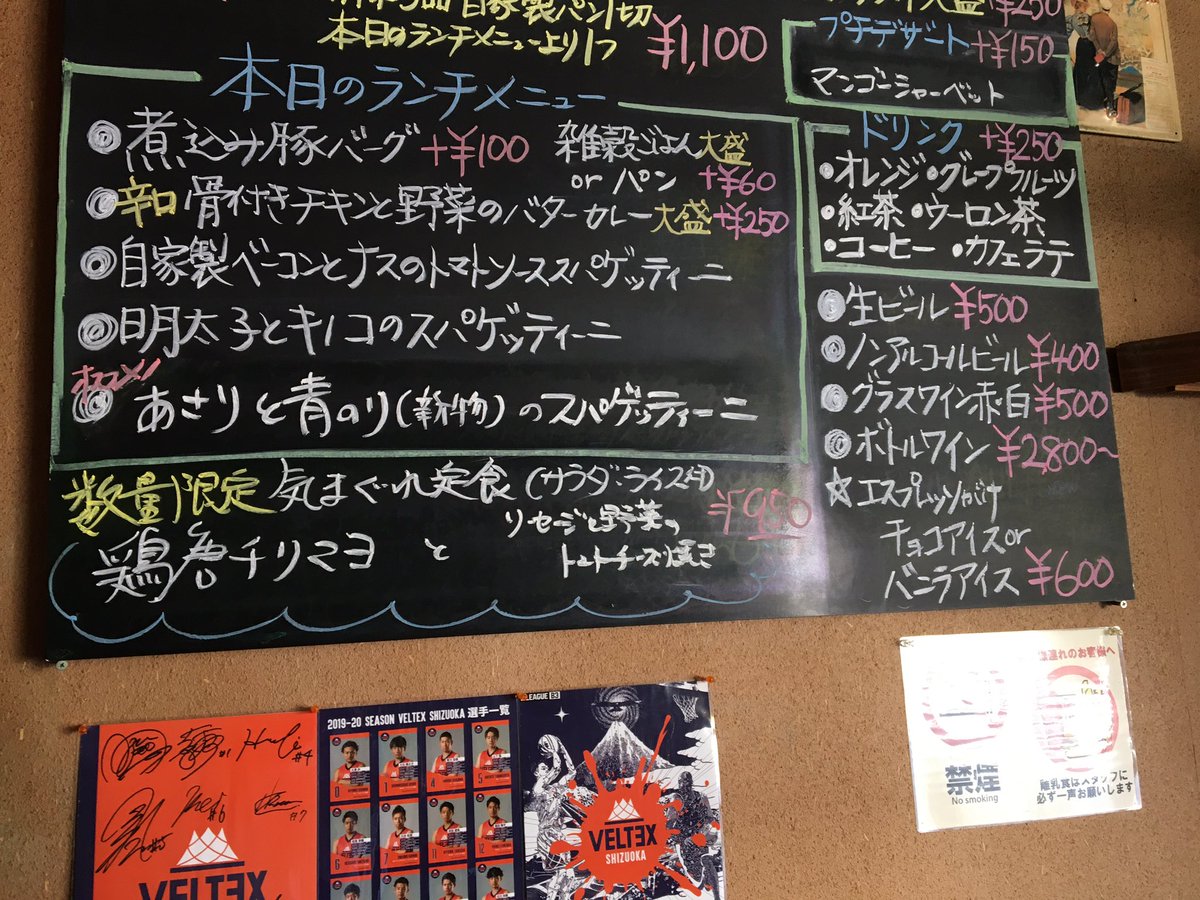 自家製パン1切
本日のランチメニューより1つ ¥1,100
大盛 +¥250
プチデザート +¥150
マンゴーシャーベット
本日のランチメニュー
煮込み豚バーグ +¥100 雑穀ごはん大盛
or パン +¥60
辛口 骨付きチキンと野菜のバターカレー 大盛+¥250
自家製ベーコンとナスのトマトソーススパゲッティーニ
明太子とキノコのスパゲッティーニ
オススメ!
あさりと青のり(新物)のスパゲッティーニ
ドリンク +¥250
・オレンジ・グレープフルーツ
・紅茶・ウーロン茶
・コーヒー ・カフェラテ
生ビール ¥500
ノンアルコールビール ¥400
グラスワイン赤・白 ¥500
ボトルワイン ¥2,800~
☆エスプレッソがけ
チョコアイス or
バニラアイス ¥600
数量限定 気まぐれ定食 (サラダ・ライス付) ¥950
鶏唐チリマヨ と
野菜の
チーズ焼き
2019-20 SEASON VELTEX SHIZUOKA 選手一覧
#4
#6
#7
0 1 4 5
6 7 11 12
VELTEX
LEAGUE B3
VELTEX
SHIZUOKA
連れのお客様へ
禁煙
No smoking
離乳食はスタッフに
必ず一声お願いします